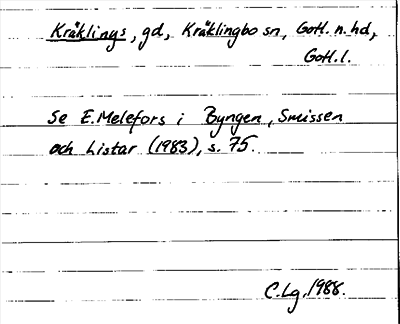 Kräklings, gd, Kräklingbo sn, Gotl. n. hd,
Gotl. l.
Se E. Melefors i Byngen, Smissen
och Listar (1983), s. 75.
C. Lg. 1988.